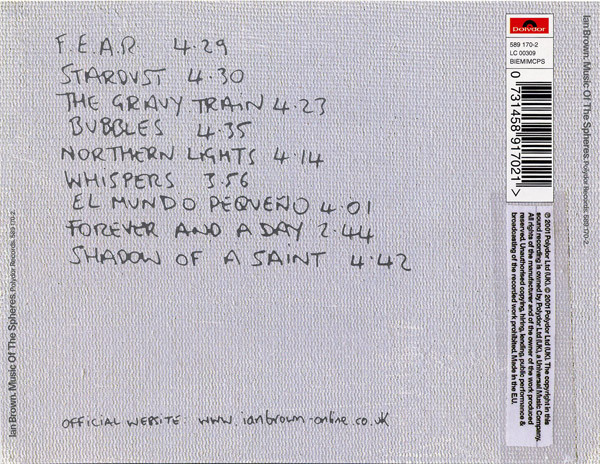 F.E.A.R 4.29
STARDUST 4.30
THE GRAVY TRAIN 4.23
BUBBLES 4.35
NORTHERN LIGHTS 4.14
WHISPERS 3.56
EL MUNDO PEQUEÑO 4.01
FOREVER AND A DAY 2.44
SHADOW OF A SAINT 4.42
OFFICIAL WEBSITE: www.ianbrown-online.co.uk
Ian Brown. Music Of The Spheres. Polydor Records. 589 170-2.
Polydor
589 170-2
LC 00309
BIEM/MCPS
0 731458 917021
℗ 2001 Polydor Ltd (UK). © 2001 Polydor Ltd (UK). The copyright in this
sound recording is owned by Polydor Ltd (UK), a Universal Music Company.
All rights of the manufacturer and of the owner of the work produced
reserved. Unauthorised copying, hiring, lending, public performance &
broadcasting of the recorded work prohibited. Made in the E.U.
Ian Brown. Music Of The Spheres. Polydor Records. 589 170-2.